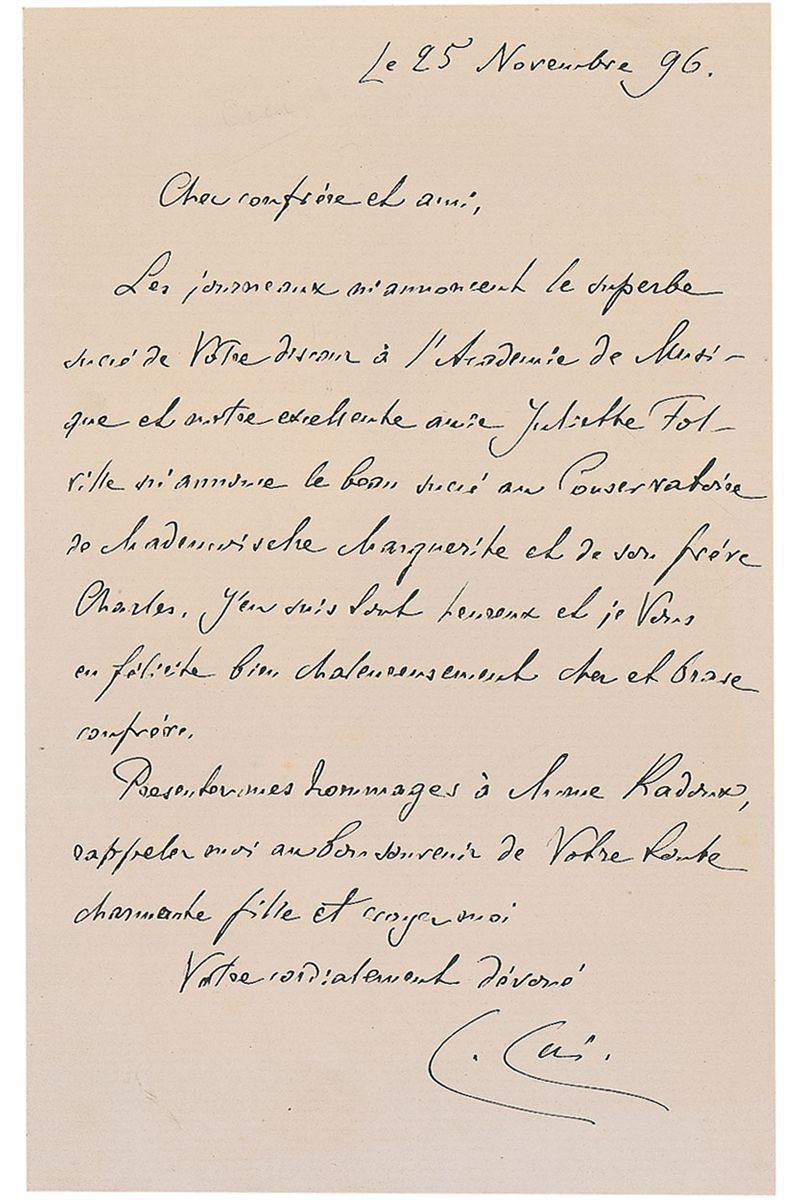 Le 25 Novembre 96.
Cher confrère et ami,
Les journeaux m'annoncent le superbe
succé de Votre discour à l'Academie de Musi-
que et notre excellente amie Juliette Fol-
ville m'annonce le beau succé au Conservatoire
de Mademoiselle Marguerite et de son frére
Charles. J'en suis tout heureux et je Vous
en félicite bien chaleureusement cher et brave
confrére.
Presenter mes hommages à Mme Radoux,
rappeler moi au bon souvenir de Votre toute
charmante fille et croyer moi
Votre cordialement dévoué
C. Cui.